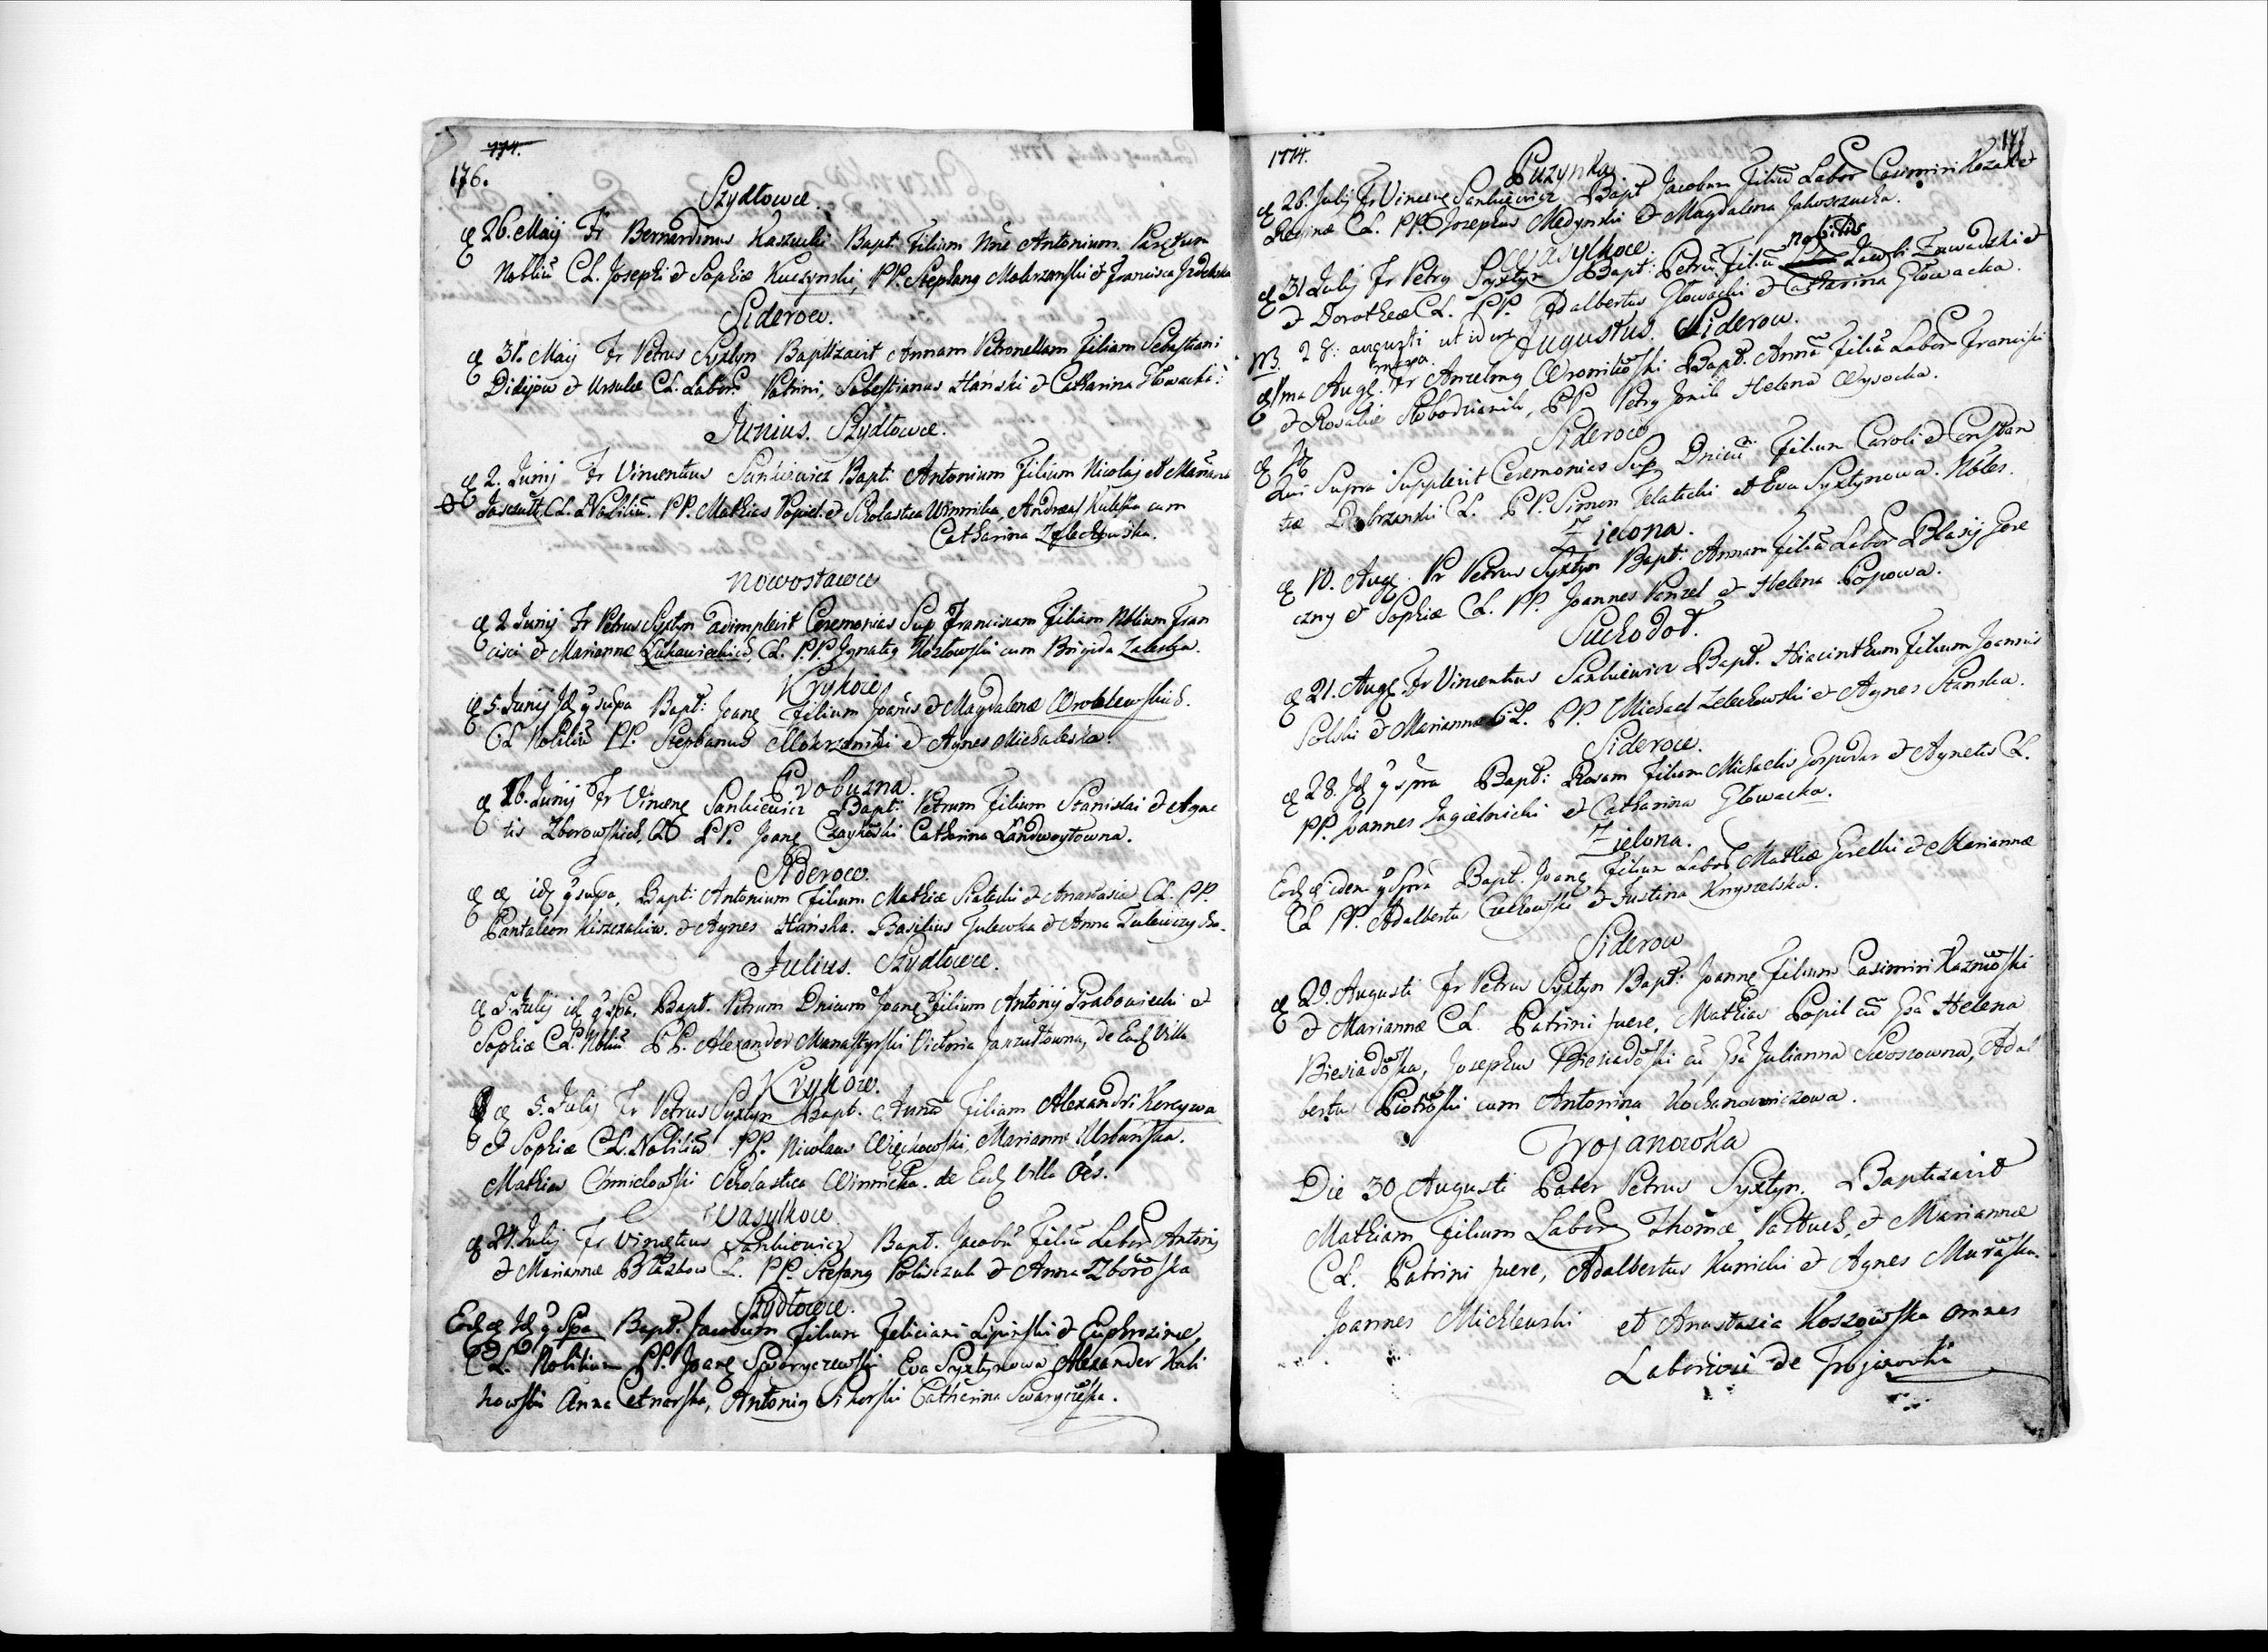 774.
176.
Szydłowce.
26. Maij Fr Bernardinus Kaszucki Bapt. Filium Nne Antonium
Nobliu CL. Josephi et Sophiæ Kuczynski, PP. Stephang Mokrzanski et Francisca
Siderow.
31. Maij Fr Petrus Syxtyn Baptizavit Annam Petronellam Filiam Sebastiani
et Ursulæ CL. Labor. Patrini, Sebestianus Hański et Catharina Głowacka.
Junius. Szydłowce.
2. Junij Fr Vincentius Sankiewicz Bapt. Antonium Filium Nicolaj et
CL. Nobiliu. PP. Mathias Popiel et Scholastica Winnicka, Andreas Kulesza cum
Catharina
Nowostawce
2 Junij Fr Petrus Syxtyn adimplevit Ceremonias Sup Franciscam Filiam Nblium Fran
cisci et Mariannæ CL. P.P. Ignatig Kozłowski cum Brigida Zaleska.
Krykow
5. Junij Id q supa Bapt. Joang Filium Joanis et Magdalenæ Wroblewskich.
CL Nobiliu PP. Stephanus Mokrzanski et Agnes Michalska.
Probuzna.
26. Junij Fr Vinceng Sankiewicz Bapt. Petrum Filium Stanislai et Agne
tis Zborowskich, CL PP. Joang Catharina Landwoytowna.
Siderow.
id q supa, Bapt. Antonium Filium Mathiæ et CL. PP.
Pantaleon et Agnes Hańska. Basilius et Anna
Julius. Szydłowce.
5 Julij id q Spa. Bapt. Petrum Dnicum Joang Filium Antonij Grabowiecki et
Sophiæ CL. Nbliu PP. Alexander Manastyrski Victoria Janzułtowna, de Ead Villa
Krykow.
5. Julij Fr Petrus Syxtyn Bapt. Anna Filiam Alexandri
et Sophiæ CL. Nobiliu PP. Nicolaus Więckowski, Marianna Urbańska.
Mathias Chmielowski Scholastica Winnicka. de Ead Villa Oes.
Wasylkow
24. Julij Fr Vincentius Sankiewicz Bapt. Jacobu Filiu Labor Antonij
et Mariannæ CL. PP. Stefang Poliszczuk et Anna Zborowska
Szydłowce.
Id q Spa Bapt. Jacobum Filium Feliciani Lipinski et Euphrozinæ
CL. Nobilium PP. Joang Swaryczewski Eva Syxtynowa Alexander Kali
nowski Anna Antonig Sikorski Catherina
1774.
177
Puzynka.
26. Julij Fr Vinceng Sankiewicz Bapt Jacobum Filiu Labor Casimiri Kozak et
Reginæ CL. PP. Josephus Medynski et Magdalena
Wasylkoce.
nobilis
31 Julij Fr Petrg Syxtyn Bapt: Petru Filiu Zawadzki et
et Dorotheæ CL. PP. Adalbertus Głowacki et Catharina Głowacka.
NB. 28: augusti ut idur
Augustus. Siderow.
1ma Augg. Fr Anzelmg Wronikowski Bapt. Anna Filia Labor Francisci
et Rosaliæ PP Petrg Helena Wysocka.
Siderow
Qui Supra Supplevit Ceremonias Sup Dnicu Filium Caroli et Constan
tiæ CL. PP. Simon et Eva Syxtynowa. Nbles.
Zielona.
10. Augg. Pr Petrus Syxtyn Bapt: Annam Filia Labor Blasij Gore
czny et Sophiæ CL. PP. Joannes et Helena Popowa.
Suchodoł.
21. Augg Fr Vincentius Sankiewicz Bapt. Hiacinthum Filium Joannis
Polski et Mariannæ CL. PP. Michael Zelechowski et Agnes Stanska.
Siderow.
28. Id q Spra Bapt: Rosam Filiam Michaelis Gospodar et Agnetis CL.
PP. Joannes Jagielnicki et Catharina Głowacka.
Zielona.
Eod idem q Spra Bapt. Joang Filium Labor Mathiæ Gorelki et Mariannæ
CL PP. Adalbertus Czechowski et Justina Knyszelska.
Siderow
29. Augusti Fr Petrus Syxtyn Bapt: Joanng Filium Casimiri
et Mariannæ CL. Patrini fuere, Mathias Popil cu Gsa Helena
Biesiadowska, Josephus Biesiadowski cu Gsa Julianna Swoszowna, Adal
bertus Piotrowski cum Antonina Kochanowiczowa.
Trojanowka
Die 30 Augusti Pater Petrus Syxtyn. Baptizavit
Mathiam Filium Labor Thomæ Partuch, et Mariannæ
CL. Patrini fuere, Adalbertus Kunicki et Agnes Murawska.
Joannes Michlewski et Anastazia Koszowska omnes
Laboriosi de Trojanowka